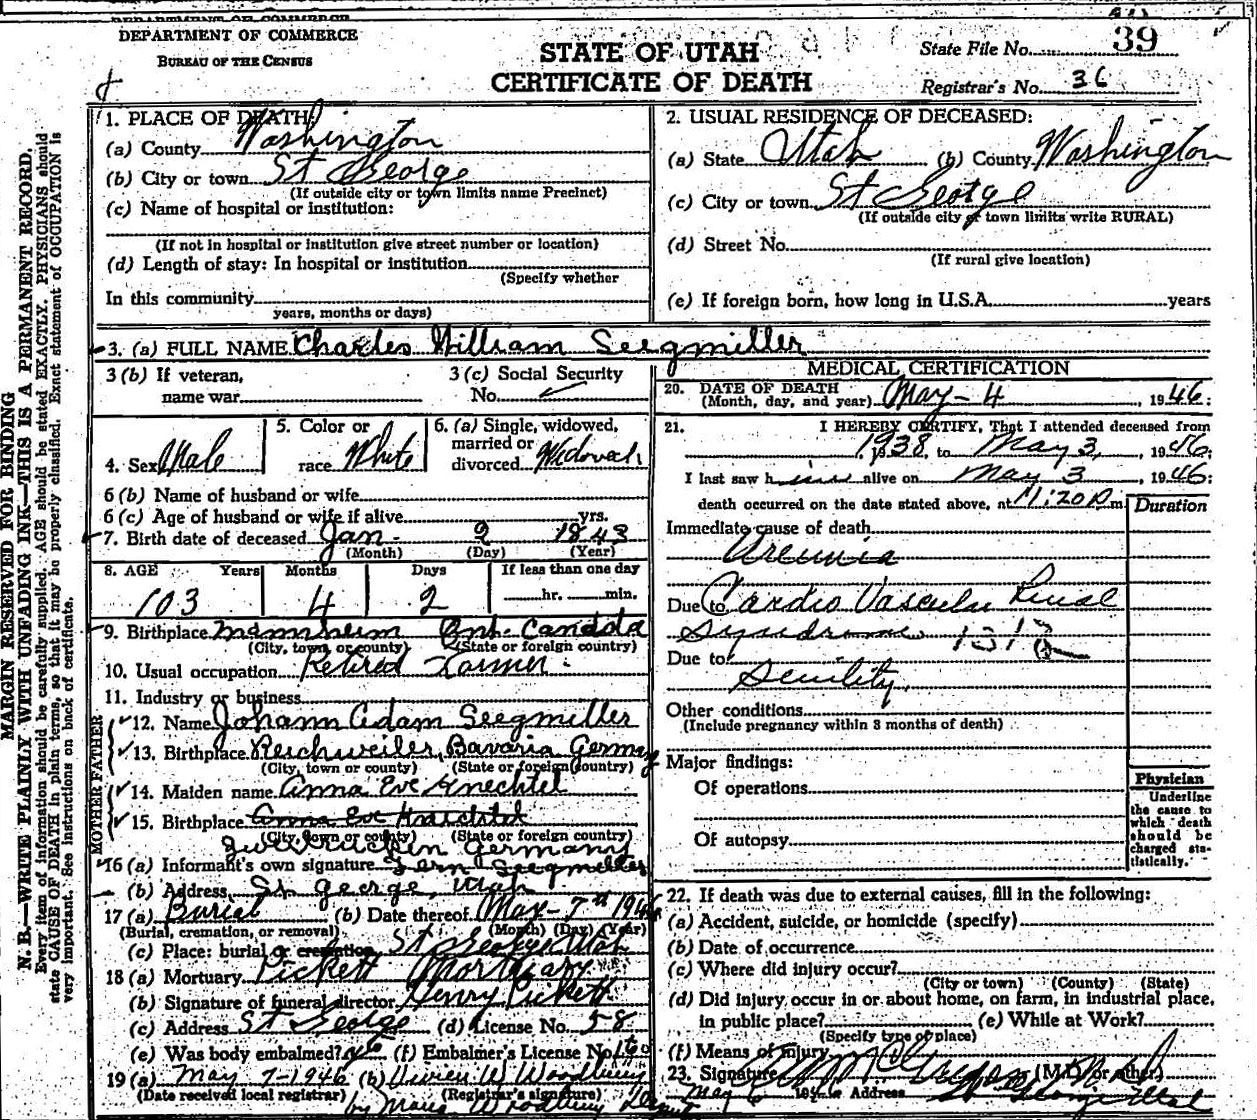 DEPARTMENT OF COMMERCE
BUREAU OF THE CENSUS
STATE OF UTAH
CERTIFICATE OF DEATH
State File No. 39
Registrar's No. 36
MARGIN RESERVED FOR BINDING
N. B.—WRITE PLAINLY WITH UNFADING INK—THIS IS A PERMANENT RECORD.
Every item of information should be carefully supplied. AGE should be stated EXACTLY. PHYSICIANS should
state CAUSE OF DEATH in plain terms, so that it may be properly classified. Exact statement of OCCUPATION is
very important. See instructions on back of certificate.
1. PLACE OF DEATH:
(a) County Washington
(b) City or town St George
(If outside city or town limits name Precinct)
(c) Name of hospital or institution:
(If not in hospital or institution give street number or location)
(d) Length of stay: In hospital or institution
(Specify whether
In this community
years, months or days)
2. USUAL RESIDENCE OF DECEASED:
(a) State Utah (b) County Washington
(c) City or town St George
(If outside city or town limits write RURAL)
(d) Street No.
(If rural give location)
(e) If foreign born, how long in U.S.A. years
3. (a) FULL NAME Charles William Seegmiller
3 (b) If veteran,
name war
3 (c) Social Security
No.
4. Sex Male
5. Color or
race White
6. (a) Single, widowed,
married or
divorced Widowed
6 (b) Name of husband or wife
6 (c) Age of husband or wife if alive yrs.
7. Birth date of deceased Jan. 2 1843
(Month) (Day) (Year)
8. AGE Years Months Days If less than one day
103 4 2 hr. min.
9. Birthplace Mannheim Ont. Canada
(City, town or county) (State or foreign country)
10. Usual occupation Retired Farmer
11. Industry or business
FATHER
12. Name Johann Adam Seegmiller
13. Birthplace Reichweiler, Bavaria Germany
(City, town or county) (State or foreign country)
MOTHER
14. Maiden name Anna Eve Knechtel
15. Birthplace Anna Eve Knechtel
(City, town or county) (State or foreign country)
Germany
16 (a) Informant's own signature Fern Seegmiller
(b) Address St. George, Utah
17 (a) Burial (b) Date thereof May - 7th 1946
(Burial, cremation, or removal) (Month) (Day) (Year)
(c) Place: burial or cremation St George Utah
18 (a) Mortuary Pickett Mortuary
(b) Signature of funeral director Henry Pickett
(c) Address St George (d) License No. 58
(e) Was body embalmed? yes (f) Embalmer's License No. 160
19 (a) May 7-1946 (b) Vivien W Woodbury
(Date received local registrar) (Registrar's signature)
by Woodbury
MEDICAL CERTIFICATION
20. DATE OF DEATH
(Month, day, and year) May - 4, 1946:
21. I HEREBY CERTIFY, That I attended deceased from
1938, to May 3, 1946;
I last saw him alive on May 3, 1946:
death occurred on the date stated above, at 11:20 P m.
Duration
Immediate cause of death
Uremia
Due to Cardio Vascular Renal
Syndrome 131
Due to
Senility
Other conditions
(Include pregnancy within 3 months of death)
Major findings:
Of operations
Of autopsy
Physician
Underline
the cause to
which death
should be
charged sta-
tistically.
22. If death was due to external causes, fill in the following:
(a) Accident, suicide, or homicide (specify)
(b) Date of occurrence
(c) Where did injury occur?
(City or town) (County) (State)
(d) Did injury occur in or about home, on farm, in industrial place,
in public place? (e) While at Work?
(Specify type of place)
(f) Means of injury
23. Signature McGregor (M.D. or other) M D
May 6 Address St George Utah